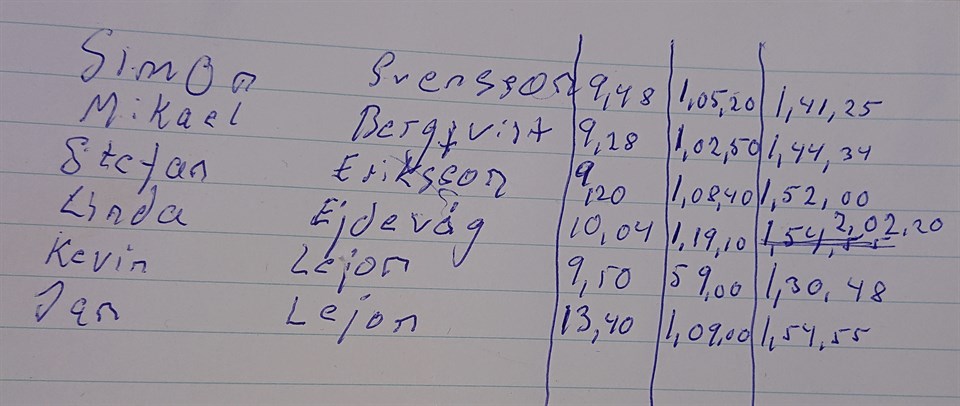 Simon Svensson 9,48 1,05,20 1,41,25
Mikael Bergqvist 9,28 1,02,50 1,44,34
Stefan Eriksson 9,20 1,08,40 1,52,00
Linda Ejdevåg 10,04 1,19,10 2,02,20
Kevin Lejon 9,50 59,00 1,30,48
Jan Lejon 13,40 1,09,00 1,54,55